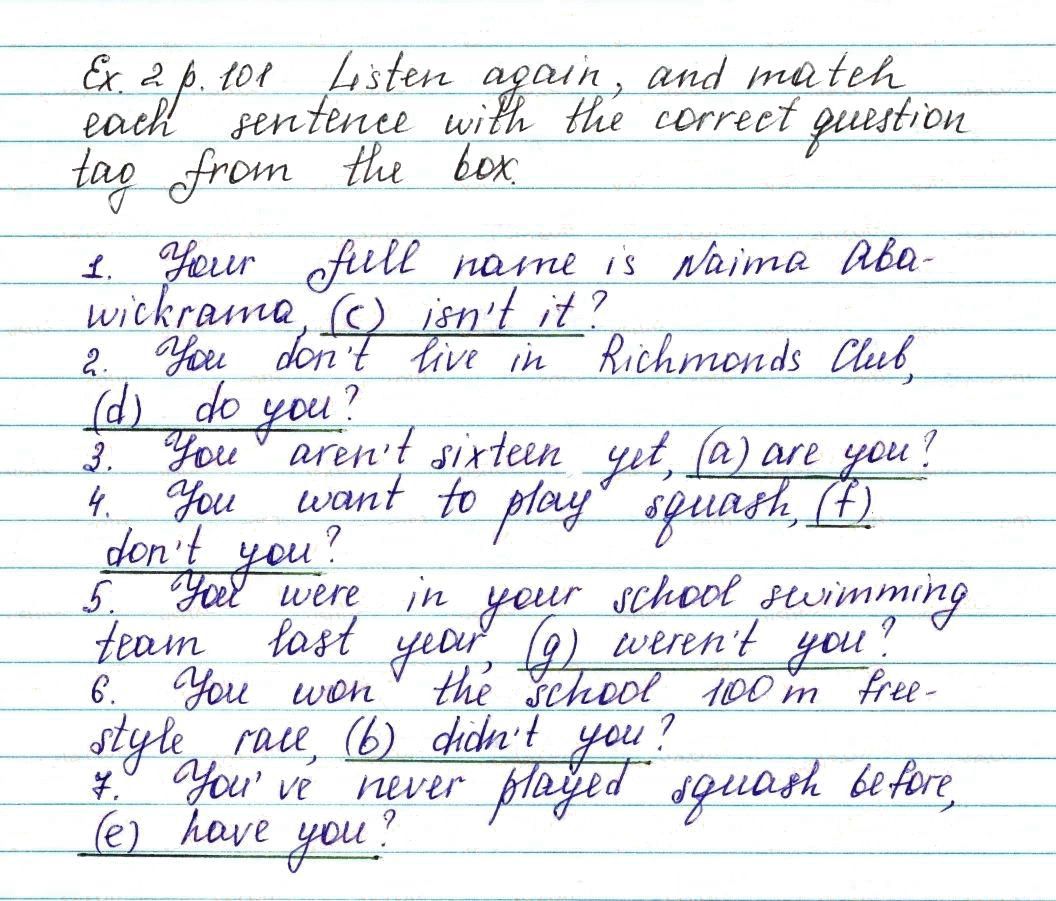 Ex. 2 p. 101 Listen again, and match
each sentence with the correct question
tag from the box.
1. Your full name is Naima Aba-
wickrama, (c) isn't it?
2. You don't live in Richmonds Club,
(d) do you?
3. You aren't sixteen yet, (a) are you?
4. You want to play squash, (f)
don't you?
5. You were in your school swimming
team last year, (g) weren't you?
6. You won the school 100 m free-
style race, (b) didn't you?
7. You've never played squash before,
(e) have you?